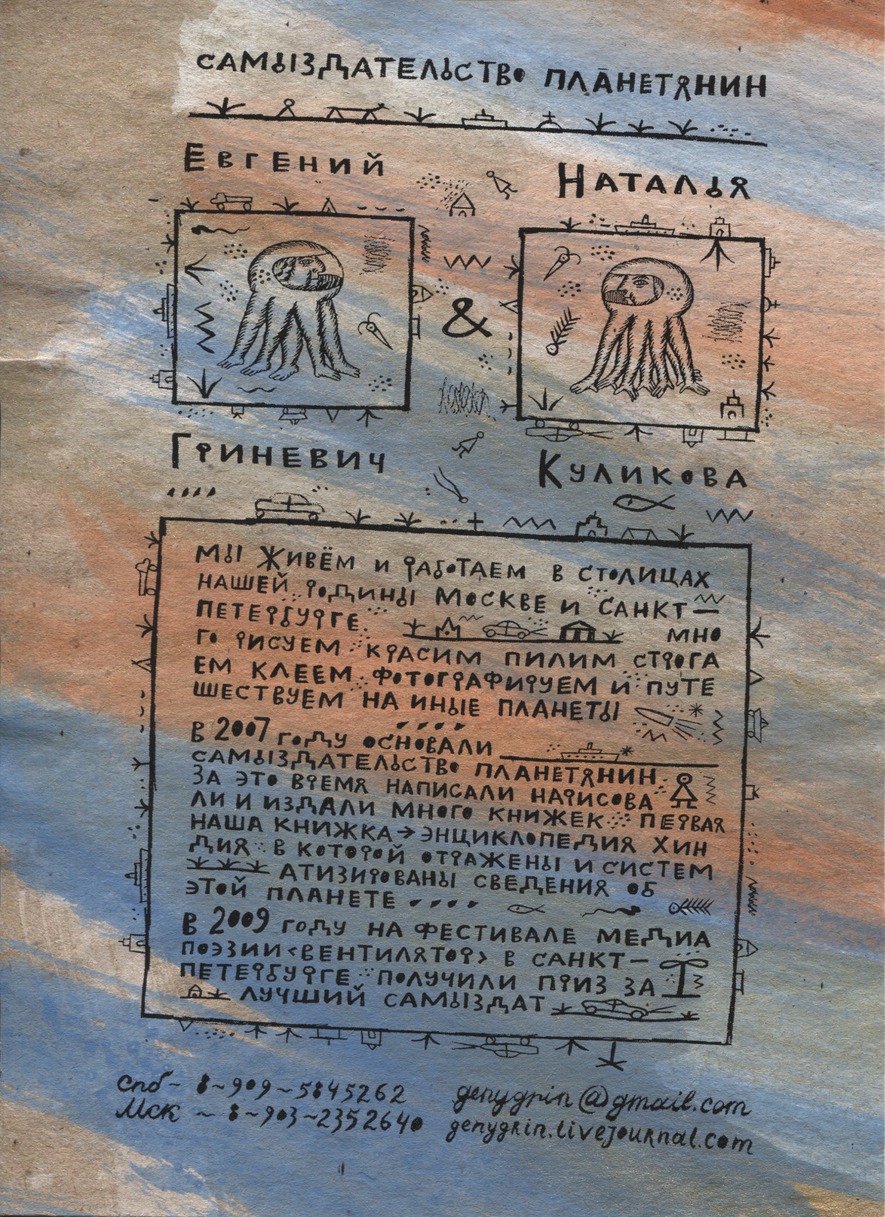 САМЫЗДАТЕЛЬСТВО ПЛАНЕТЯНИН
ЕВГЕНИЙ
НАТАЛЬЯ
&
ГРИНЕВИЧ
КУЛИКОВА
МЫ ЖИВЁМ И РАБОТАЕМ В СТОЛИЦАХ
НАШЕЙ РОДИНЫ МОСКВЕ И САНКТ—
ПЕТЕРБУРГЕ МНО
ГО РИСУЕМ КРАСИМ ПИЛИМ СТРОГА
ЕМ КЛЕЕМ ФОТОГРАФИРУЕМ И ПУТЕ
ШЕСТВУЕМ НА ИНЫЕ ПЛАНЕТЫ
В 2007 ГОДУ ОСНОВАЛИ
САМЫЗДАТЕЛЬСТВО ПЛАНЕТЯНИН
ЗА ЭТО ВРЕМЯ НАПИСАЛИ НАРИСОВА
ЛИ И ИЗДАЛИ МНОГО КНИЖЕК ПЕРВАЯ
НАША КНИЖКА → ЭНЦИКЛОПЕДИЯ ХИН
ДИЯ В КОТОРОЙ ОТРАЖЕНЫ И СИСТЕМ
АТИЗИРОВАНЫ СВЕДЕНИЯ ОБ
ЭТОЙ ПЛАНЕТЕ
В 2009 ГОДУ НА ФЕСТИВАЛЕ МЕДИА
ПОЭЗИИ <ВЕНТИЛЯТОР> В САНКТ—
ПЕТЕРБУРГЕ ПОЛУЧИЛИ ПРИЗ ЗА
ЛУЧШИЙ САМЫЗДАТ
Спб - 8~909~5845262
Мск ~ 8~903~2352640
genygrin@gmail.com
genygrin.livejournal.com